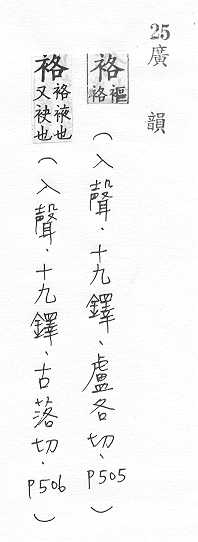 25
廣韻
袼 䙔袼 (入聲．十九鐸、盧各切．P505)
袼 袼䘸也又袂也 (入聲．十九鐸、古落切．P506)